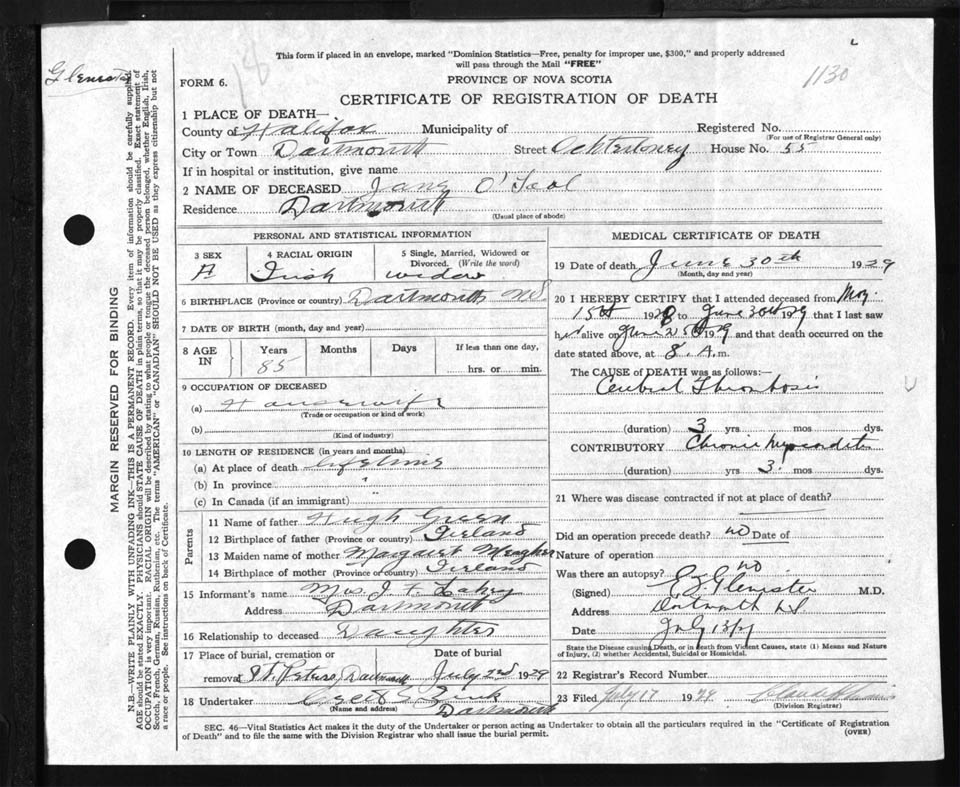 Glenister
18
1130
This form if placed in an envelope, marked "Dominion Statistics—Free, penalty for improper use, $300," and properly addressed
will pass through the Mail "FREE"
FORM 6.
PROVINCE OF NOVA SCOTIA
CERTIFICATE OF REGISTRATION OF DEATH
1 PLACE OF DEATH—
County of Halifax Municipality of Registered No.
(For use of Registrar General only)
City or Town Dartmouth Street Ochterloney House No. 55
If in hospital or institution, give name
2 NAME OF DECEASED Jane O'Tool
Residence Dartmouth
(Usual place of abode)
PERSONAL AND STATISTICAL INFORMATION
3 SEX 4 RACIAL ORIGIN 5 Single, Married, Widowed or Divorced. (Write the word)
F Irish widow
6 BIRTHPLACE (Province or country) Dartmouth NS
7 DATE OF BIRTH (month, day and year)
8 AGE IN Years Months Days If less than one day,
85 hrs. or min.
9 OCCUPATION OF DECEASED
(a) Housewife
(Trade or occupation or kind of work)
(b)
(Kind of industry)
10 LENGTH OF RESIDENCE (in years and months)
(a) At place of death lifetime
(b) In province "
(c) In Canada (if an immigrant)
Parents
11 Name of father Hugh Green
12 Birthplace of father (Province or country) Ireland
13 Maiden name of mother Margaret Meagher
14 Birthplace of mother (Province or country) Ireland
15 Informant's name Mrs. J.
Address Dartmouth
16 Relationship to deceased Daughter
17 Place of burial, cremation or Date of burial
removal St. Peters, Dartmouth July 2nd 1929
18 Undertaker Zink
(Name and address) Dartmouth
MEDICAL CERTIFICATE OF DEATH
19 Date of death June 30th 1929
(Month, day and year)
20 I HEREBY CERTIFY that I attended deceased from May
15th 1928 to June 30th 1929 that I last saw
her alive on June 25th 1929 and that death occurred on the
date stated above, at 8. A.m.
The CAUSE of DEATH was as follows:—
Cerebral Thrombosis
(duration) 3 yrs mos dys.
CONTRIBUTORY Chronic Myocarditis
(duration) yrs 3. mos. dys.
21 Where was disease contracted if not at place of death?
Did an operation precede death? no Date of
Nature of operation
Was there an autopsy? no
(Signed) Glenister M.D.
Address Dartmouth NS
Date July 13/29
State the Disease causing Death, or in death from Violent Causes, state (1) Means and Nature
of Injury, (2) whether Accidental, Suicidal or Homicidal.
22 Registrar's Record Number
23 Filed July 17 1929
(Division Registrar)
SEC. 46—Vital Statistics Act makes it the duty of the Undertaker or person acting as Undertaker to obtain all the particulars required in the "Certificate of Registration
of Death" and to file the same with the Division Registrar who shall issue the burial permit. (OVER)
MARGIN RESERVED FOR BINDING
N.B.—WRITE PLAINLY WITH UNFADING INK—THIS IS A PERMANENT RECORD. Every item of information should be carefully supplied.
AGE should be stated EXACTLY. PHYSICIANS should STATE CAUSE OF DEATH in plain terms, so that it may be properly classified. Exact statement of
OCCUPATION is very important. RACIAL ORIGIN will be described by stating to what people or tongue the deceased person belonged, whether English, Irish,
Scotch, French, German, Russian, Ruthenian, etc. The terms "AMERICAN" or "CANADIAN" SHOULD NOT BE USED as they express citizenship but not
a race or people. See instructions on back of Certificate.